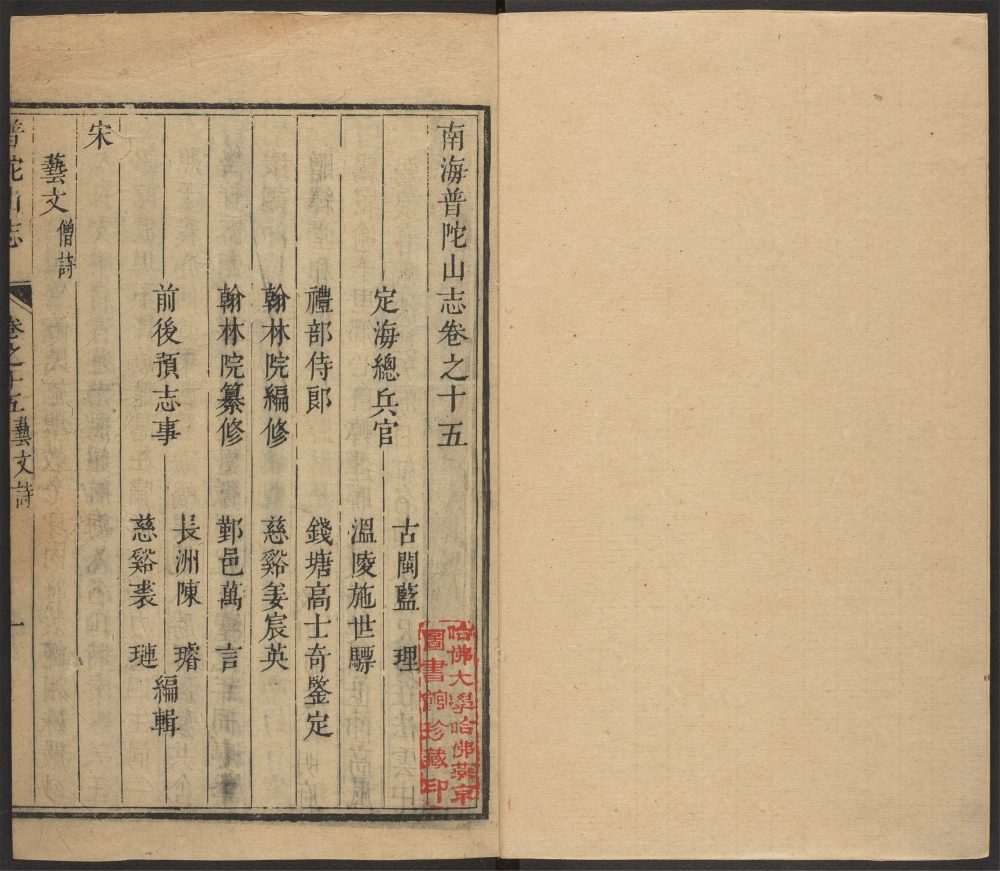 南海普陀山志卷之十五
定海總兵官
古閩藍理
溫陵施世驃
禮部侍郎
錢塘高士奇鑒定
翰林院編修
慈谿姜宸英
翰林院纂修
鄞邑萬言
前後預志事
長洲陳璿
慈谿裘璉
編輯
宋
藝文僧詩
普陀山志
卷之十五藝文詩
一
哈佛大學哈佛燕京
圖書館珍藏印